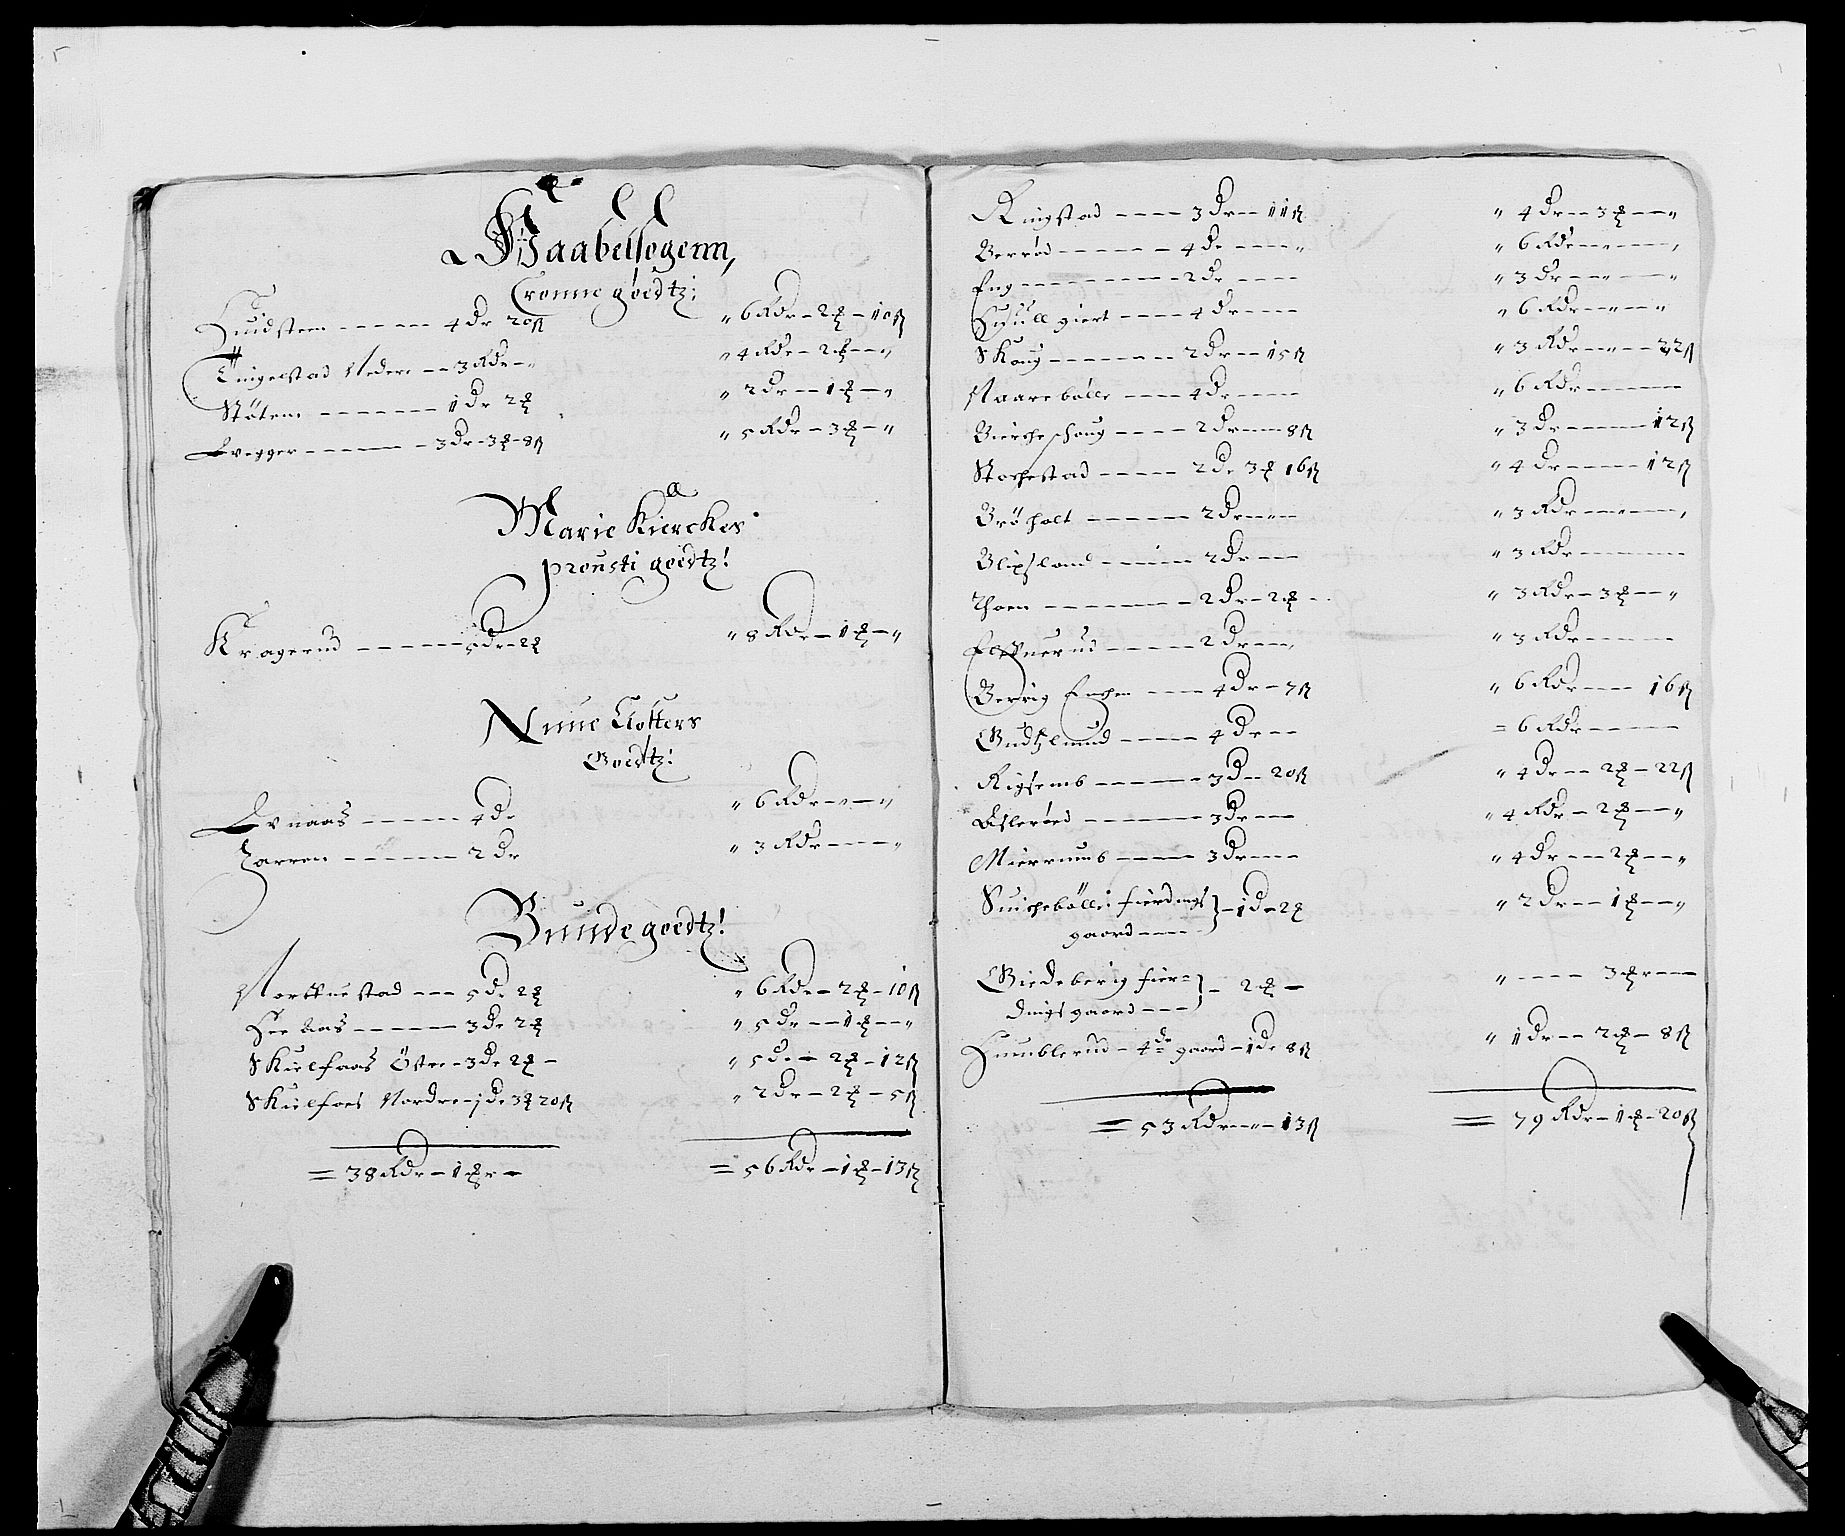 Haabelsogenn,
Cronne goedtz:
Huidsteen ----- 4 Dr 20 ß " 6 Rdr - 2 ꝑ - 10 ß
Tingelstad Neder -- 3 Rdr - " " 4 Rdr - 2 ꝑ -- "
Stöten ------ 1 Dr 2 ꝑ " 2 dr -- 1 ꝑ -- "
Evegger ------ 3 Dr - 3 ꝑ - 8 ß " 5 Rdr - 3 ꝑ - "
Marie Kierckes
prousti goedtz!
Kragerud ------ 5 dr - 2 ꝑ " 8 Rdr - 1 ꝑ - "
Nunne Closters
Goedtz!
Evnaas ----- 4 dr " 6 Rdr - " -- "
Jarren ------ 2 Dr " 3 Rdr --- "
Bunde goedtz!
 --- 5 dr 2 ꝑ " 6 Rdr - 2 ꝑ - 10 ß
 ------ 3 dr 2 ꝑ " 5 dr -- 1 ꝑ -- "
Skielfaas Östre - 3 dr 2 ꝑ - " 5 dr - 2 ꝑ - 12 ß
Skielfoes Nordre - j dr 3 ꝑ 20 ß " 2 dr - 2 ꝑ - 5 ß
= 38 Rdr - 1 ꝑ - = 56 Rdr - 1 ꝑ - 13 ß
Ringstad ---- 3 Dr -- 11 ß " 4 dr -- 3 ꝑ -- "
Berrød ------ 4 dr ---- " 6 Rdr ----
Eng -------- 2 dr ---- " 3 dr ---- "
 giert ---- 4 dr --- " 6 Rdr --- "
Skoug ------- 2 dr -- 15 ß " 3 Rdr --- 22 ß
Naarebölle ---- 4 dr ---- " 6 Rdr -----
Bierche schoug ---- 2 dr --- 8 ß " 3 dr ----- 12 ß
Stochestad ---- 2 dr 3 ꝑ 16 ß " 4 dr ---- 12 ß
Bröholt ------ 2 dr --- " 3 Rdr -----
Blixland ------ 2 dr -- " 3 Rdr ------
Thoen ------- 2 dr - 2 ꝑ " 3 Rdr - 3 ꝑ -- "
 ------ 2 dr --- " 3 Rdr -----
Berrig Engen --- 4 dr - 7 ß " 6 Rdr --- 16 ß
Gudtzlund ---- 4 dr -- = 6 Rdr -----
Rigsemb ------ 3 d - 20 ß " 4 dr -- 2 ꝑ - 22 ß
Eslerøed ------ 3 dr -- " 4 Rdr - 2 ꝑ -- "
Mierrumb ---- 3 dr --- " 4 dr -- 2 ꝑ -- "
Suichebölle fierdings } - 1 d - 2 ꝑ " 2 dr -- 1 ꝑ -- "
gaard ----
Giedeberig fier= } - 2 ꝑ - " ---- 3 ꝑ ---
dings gaard ---
Humblerud - 4de gaard - 1 dr 8 ß " 1 dr -- 2 ꝑ - 8 ß
= 53 Rdr -- " - 13 ß = 79 Rdr - 1 ꝑ - 20 ß